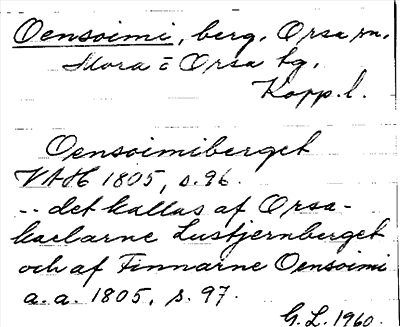 Oensoimi, berg, Orsa sn,
Mora o Orsa tg,
Kopp. l.
Oensoimiberget
VAH 1805, s. 96.
-- det kallas af Orsa-
karlarne Lustjernberget
och af Finnarne Oensoimi
a. a. 1805, s. 97.
G. L. 1960.